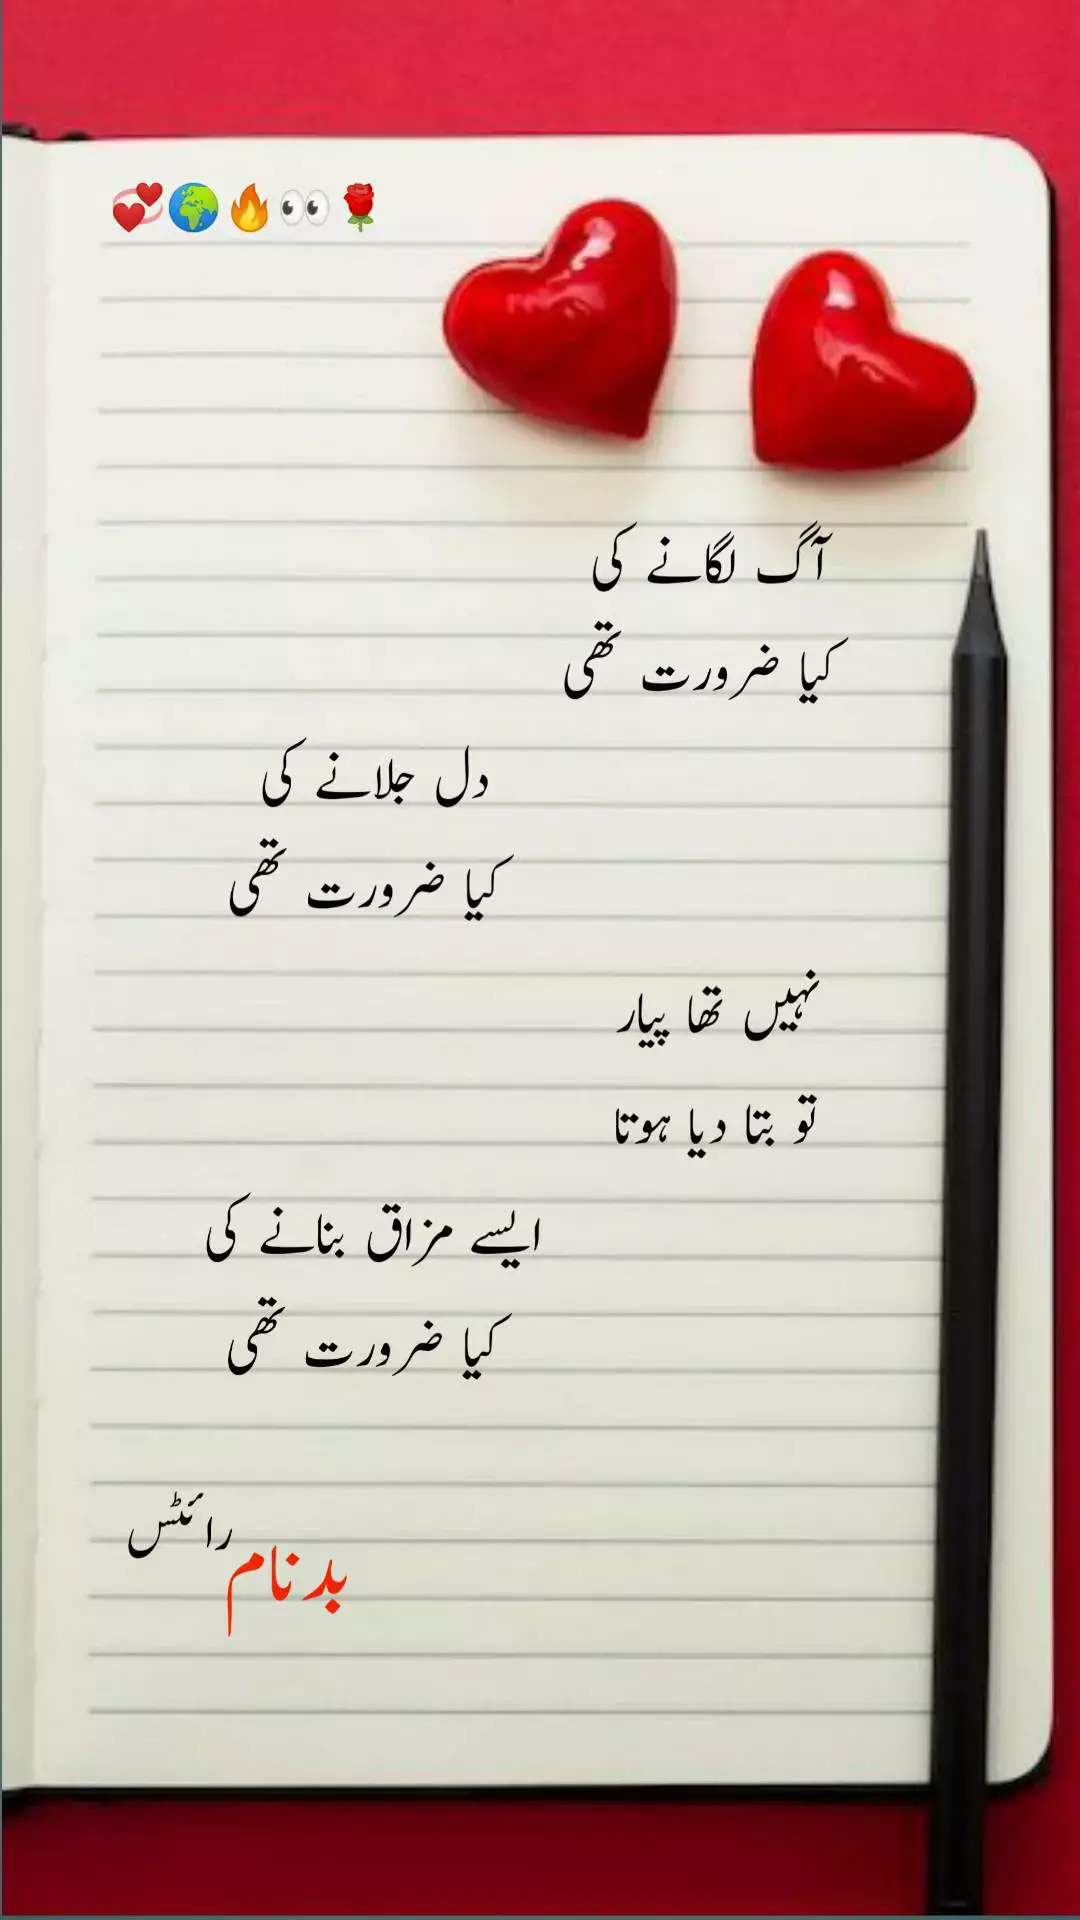 💞🌍🔥👀🌹
آگ لگانے کی
کیا ضرورت تھی
دل جلانے کی
کیا ضرورت تھی
نہیں تھا پیار
تو بتا دیا ہوتا
ایسے مزاق بنانے کی
کیا ضرورت تھی
رائٹس
بدنام